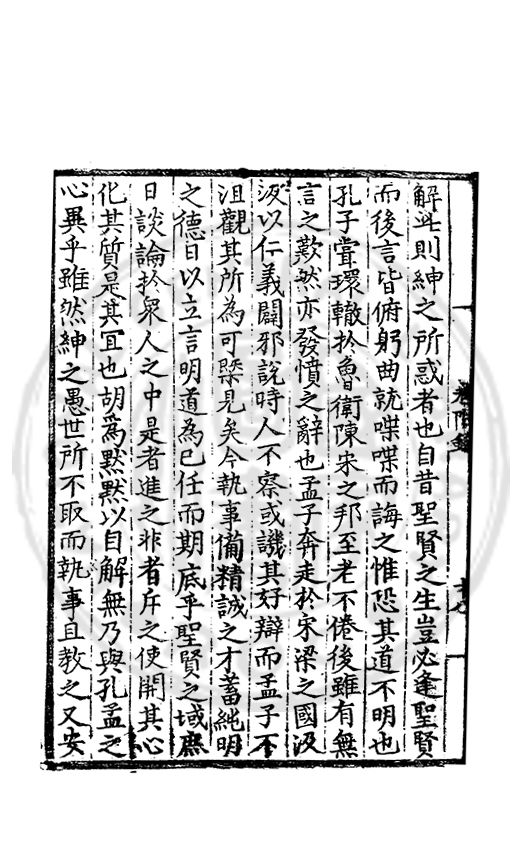 解此則紳之所惑者也自昔聖賢之生豈必逢聖賢
而後言皆俯躬曲就喋喋而誨之惟恐其道不明也
孔子嘗環轍於魯衛陳宋之邦至老不倦後雖有無
言之歎然亦發憤之辭也孟子奔走於宋梁之國汲
汲以仁義闢邪說時人不察或譏其好辯而孟子不
沮觀其所為可槩見矣今執事備精誠之才蓄純明
之德日以立言明道為己任而期底乎聖賢之域庶
日談論於衆人之中是者進之非者斥之使開其心
化其質是其宜也胡為默默以自解無乃與孔孟之
心異乎雖然紳之愚世所不取而執事且教之又安